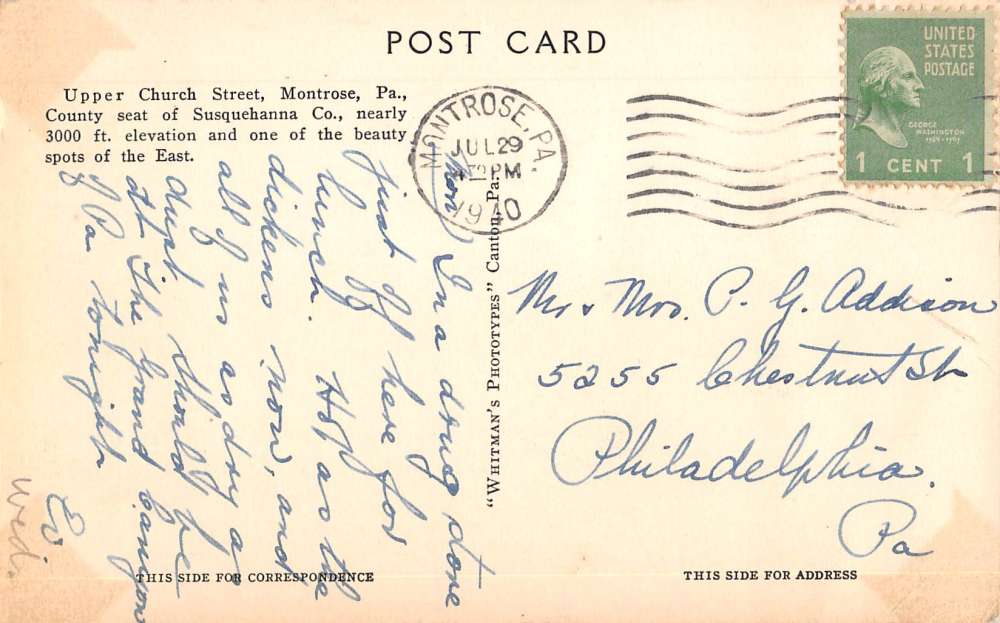 POST CARD
Upper Church Street, Montrose, Pa.,
County seat of Susquehanna Co., nearly
3000 ft. elevation and one of the beauty
spots of the East.
MONTROSE, PA.
JUL 29
PM
1940
UNITED
STATES
POSTAGE
GEORGE
WASHINGTON
1 CENT 1
Mon
In a drug store
just off here for
lunch. Hot as the
dickens now, and
all of us as dry as
dust. Should be
at the Grand Canyon
of Pa tonight
Ev
Wed.
"WHITMAN'S PHOTOTYPES" Canton, Pa.
Mr & Mrs. P. G. Addison
5255 Chestnut St
Philadelphia.
Pa
THIS SIDE FOR CORRESPONDENCE
THIS SIDE FOR ADDRESS